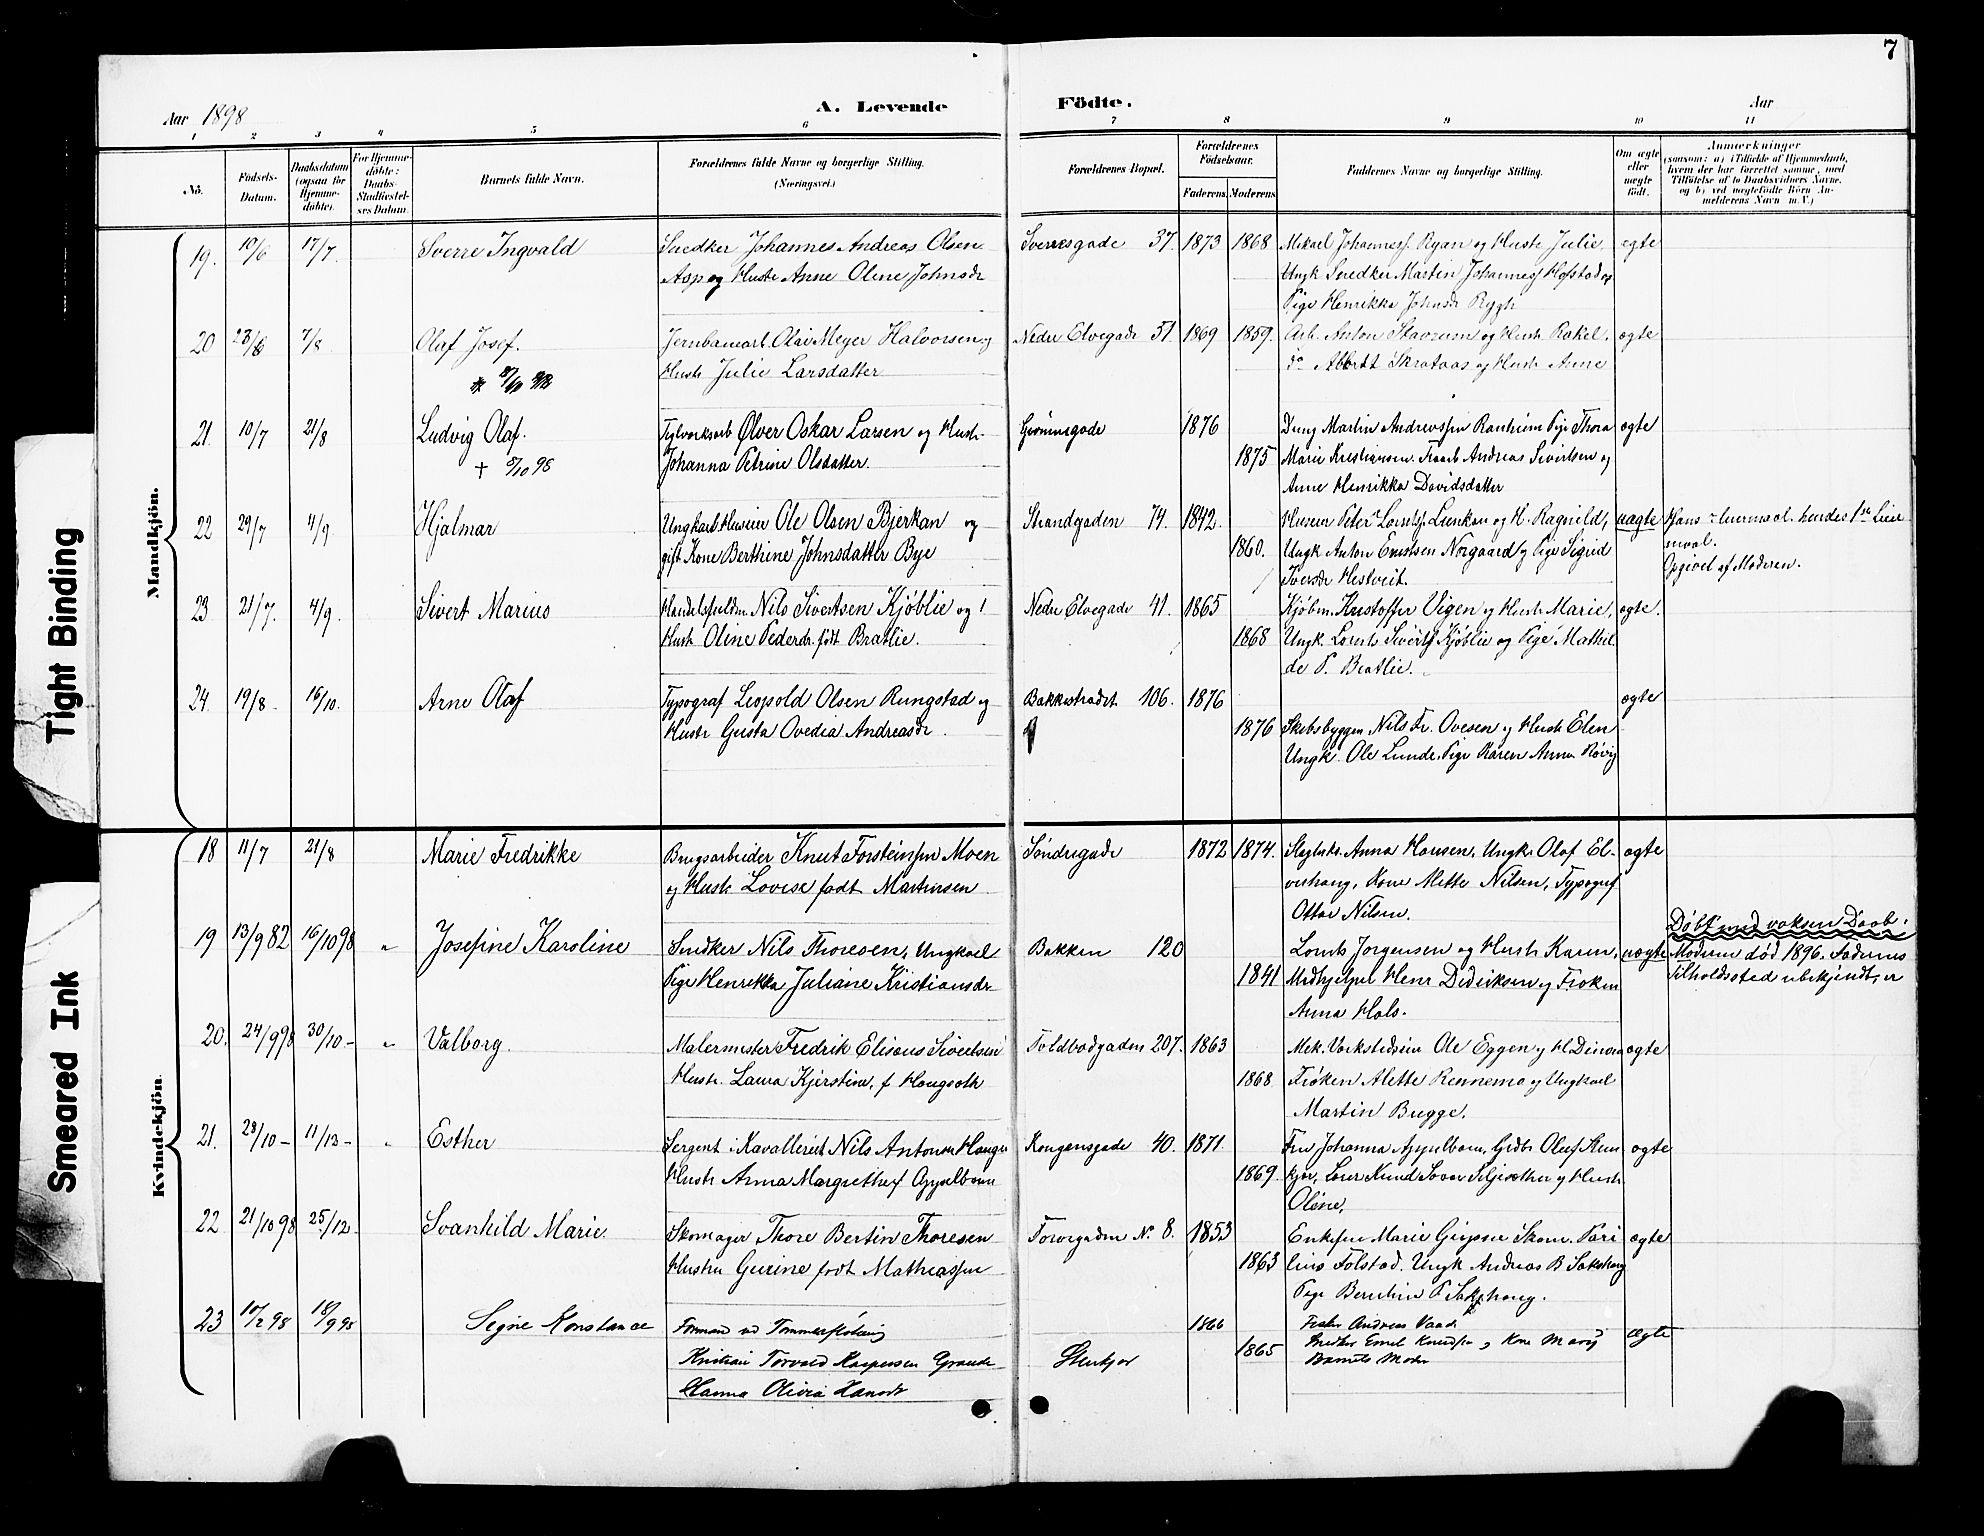 7
Aar 1898
A. Levende Födte.
Aar
1 2 3 4 5 6 7 8 9 10 11
No.
Födsels-Datum.
Daabsdatum (ogsaa for Hjemme-döbte).
For Hjemme-döbte: Daabs-Stadfæstel-ses Datum.
Barnets fulde Navn.
Forældrenes fulde Navne og borgerlige Stilling. (Næringsvei.)
Forældrenes Bopæl.
Forældrenes Födselsaar.
Faderens Moderens
Faddernes Navne og borgerlige Stilling.
Om ægte eller uægte födt.
Anmærkninger
(saasom: a) i Tilfælde af Hjemmedaab, hvem der har forrettet samme, med Tilföielse af to Daabsvidners Navne, og b) ved uægtefödte Börn Anmelderens Navn m. V.)
Mandkjön.
19. 10/6 17/7 Sverre Ingvald Snedker Johannes Andreas Olsen Sverresgade 37. 1873 1868 Mikael Johannes Ryan og Hustr Julie, ægte
Asp og Hustr Anne Oline Johnsdr Ungk Snedker Martin Johannes Hofstad og
Pige Henrikka Johnsdr Rygh
20 23/6 7/8 Olaf Josef. Jernbanearb. Olai Meyer Halvorsen og Nedre Elvegade 51. 1869 1859. Arb. Anton Stavrum og Hustr Rakel. ægte
Hustr Julie Larsdatter do Albert Skrataas og Hustr Anne
21. 10/7 21/8 Ludvig Olaf. Teglverksarb Ølver Oskar Larsen og Hustr 1876 Martin Andreassen Ranheim Pige Thora ægte
† 8/10 98 Johanna Petrine Olsdatter. 1875 Marie Kristiansen. Andreas Sivertsen og
Anne Henrikka Davidsdatter
22 29/7 4/9 Hjalmar Ungkarl Husein Ole Olsen Bjerkan og Strandgaden 74. 1842. Husein Peter Lornts. Leinkan og H. Ragnild, uægte Hans
gift Kone Berthine Johnsdatter Bye 1860. Ungk Anton Norgaard og Pige Sigrid
Iversdr Hestveit. Opgivet af Moderen.
23. 21/7. 4/9. Sivert Marius Handelsfuldm. Nils Sivertsen Kjøblie og Nedre Elvegade 41. 1865 Kjøbm. Kristoffer Vigen og Hustr Marie, ægte.
Hustr Oline Pedersdr. født Bratlie. 1868 Ungk. Lornts Siverts Kjøblie og Pige Mathil
de P. Bratlie.
24. 19/8. 16/10. Arne Olaf Typograf Leopold Olsen Rungstad og Bakkestrædet 106. 1876 ægte
Hustr Gusta Ovedia Andreasdr. 1876 Skibsbygger Nils Fr. Ovesen og Hustr Elen
Ungk. Ole Lunde, Pige Karen Anna Røvig
Kvindekjön.
18 11/7 21/8 Marie Fredrikke Brugsarbeider Knut Torsteinsen Moen Søndregade 1872 1874. Anna Hansen, Ungk. Olaf El- ægte
og Hustr Lovise født Martinsen verhaug, Kone Mette Nilsen, Typograf
Ottar Nilsen.
19 13/9 82 16/10 98 " Josefine Karoline Snedker Nils Thoresen, Ungkarl Bakken 120 Lornts Jorgensen og Hustr Karen, uægte Døbt med voksen Daab.
Pige Henrikka Juliane Kristiansdr 1841 Medhjelper Henr Didriksen og Frøken Moderen død 1896. Faderens
Anna Hals. tilholdssted ubekjendt.
20. 24/9 98 30/10 - " Valborg. Malermester Fredrik Elisæus Sivertsen Toldbodgaden 207. 1863 Mek. Verkstedseier Ole Eggen og H Dinora ægte
Hustr. Laura Kjerstine, f Haugseth 1868 Frøken Alette Rennemo og Ungkarl
Martin Brugge.
21. 28/10 - 11/12 - " Esther Sergent i Kavalleriet Nils Anton Hauger Kongensgade 40. 1871. Fru Johanna Appelbom, Grdbr Oluf Stein ægte
Hustr Anna Margrethe f Appelbom 1869. kjer, Lærer Knud Soseter og Hustr
Oline,
22 21/10 98 25/12 - Svanhild Marie. Skomager Thore Bertin Thoresen Torvegaden No. 8. 1853 Enkefru Marie Skom. Peri ægte
Hustru Gurine født Mathiassen 1863 Tolstad. Ungk Andreas B Sakshaug
Pige P Sakshaug.
23 10/2 98 18/9 98 Signe Konstance Formand ved Tømmerfløtning 1866 Andreas Vaade ægte
Kristian Torvald Kaspersen Grande Stenkjer 1865 Snedker Emil Knudsen og Kone Marij
Hanna Olivia Hansdr Barnets Moder
Tight Binding
Smeared Ink